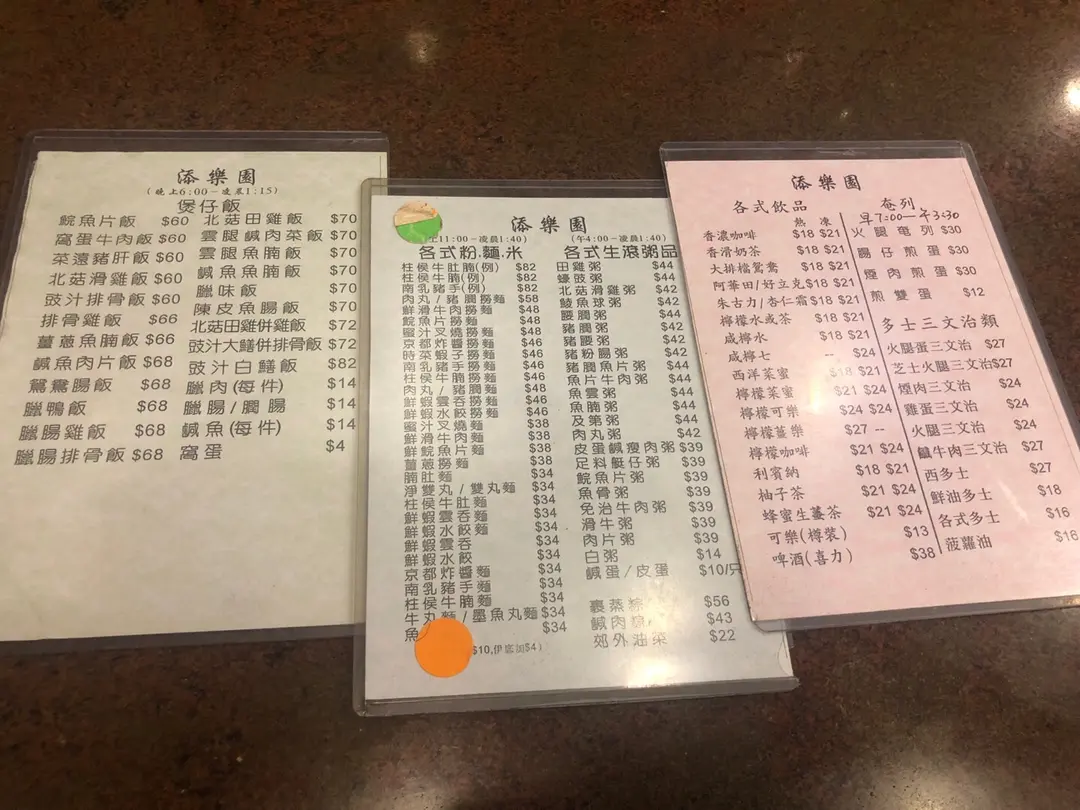 添樂園
(晚上6:00-凌晨1:15)
煲仔飯
鯇魚片飯 $60
窩蛋牛肉飯 $60
菜遠豬肝飯 $60
北菇滑雞飯 $60
豉汁排骨飯 $60
排骨雞飯 $66
薑蔥魚腩飯 $66
鹹魚肉片飯 $68
鴛鴦腸飯 $68
臘鴨飯 $68
臘腸雞飯 $68
臘腸排骨飯 $68
北菇田雞飯 $70
雲腿鹹肉菜飯 $70
雲腿魚腩飯 $70
鹹魚魚腩飯 $70
臘味飯 $70
陳皮魚腸飯 $70
北菇田雞併雞飯 $72
豉汁大鱔併排骨飯 $72
豉汁白鱔飯 $82
臘肉(每件) $14
臘腸/膶腸 $14
鹹魚(每件) $14
窩蛋 $4
添樂園
上11:00-凌晨1:40)
各式粉.麵.米
柱侯牛肚腩(例) $82
柱侯牛腩(例) $82
南乳豬手(例) $82
肉丸/豬膶撈麵 $58
鮮滑牛肉撈麵 $48
鯇魚片撈麵 $48
蜜汁叉燒撈麵 $48
京都炸醬撈麵 $46
時菜蝦子撈麵 $46
南乳豬手撈麵 $46
柱侯牛腩撈麵 $46
肉丸/豬膶麵 $48
鮮蝦雲吞撈麵 $46
鮮蝦水餃撈麵 $46
蜜汁叉燒麵 $38
鮮滑牛肉麵 $38
鮮鯇魚片麵 $38
薑蔥撈麵 $38
腩肚麵 $34
淨雙丸/雙丸麵 $34
柱侯牛肚麵 $34
鮮蝦雲吞麵 $34
鮮蝦水餃麵 $34
鮮蝦雲吞 $34
鮮蝦水餃 $34
京都炸醬麵 $34
南乳豬手麵 $34
柱侯牛腩麵 $34
牛丸麵/墨魚丸麵 $34
魚 $34
$10,伊底加$4)
(午4:00-凌晨1:40)
各式生滾粥品
田雞粥 $44
蠔豉粥 $44
北菇滑雞粥 $42
鯪魚球粥 $42
腰膶粥 $44
豬膶粥 $42
豬腰粥 $42
豬粉腸粥 $44
魚片牛肉粥 $44
魚雲粥 $44
魚腩粥 $44
及第粥 $44
肉丸粥 $42
皮蛋鹹瘦肉粥 $39
足料艇仔粥 $39
鯇魚片粥 $39
魚骨粥 $39
免治牛肉粥 $39
滑牛粥 $39
肉片粥 $39
白粥 $14
鹹蛋/皮蛋 $10/只
裹蒸粽 $56
鹹肉 $43
郊外油菜 $22
添樂園
各式飲品
熱 凍
香濃咖啡 $18 $21
香滑奶茶 $18 $21
大排檔鴛鴦 $18 $21
阿華田/好立克 $18 $21
朱古力/杏仁霜 $18 $21
檸檬水或茶 $18 $21
咸檸水 $18 $21
咸檸七 -- $24
西洋菜蜜 $18 $21
檸檬菜蜜 $21 $24
檸檬可樂 $24 $24
檸檬薑樂 $27 --
檸檬咖啡 $21 $24
利賓納 $18 $21
柚子茶 $21 $24
蜂蜜生薑茶 $21 $24
可樂(樽裝) $13
啤酒(喜力) $38
奄列
早7:00-午3:30
火腿奄列 $30
腸仔煎蛋 $30
煙肉煎蛋 $30
煎雙蛋 $12
多士三文治類
火腿蛋三文治 $27
芝士火腿三文治 $27
煙肉三文治 $24
雞蛋三文治 $24
火腿三文治 $24
鹹牛肉三文治 $27
西多士 $27
鮮油多士 $18
各式多士 $16
菠蘿油 $16